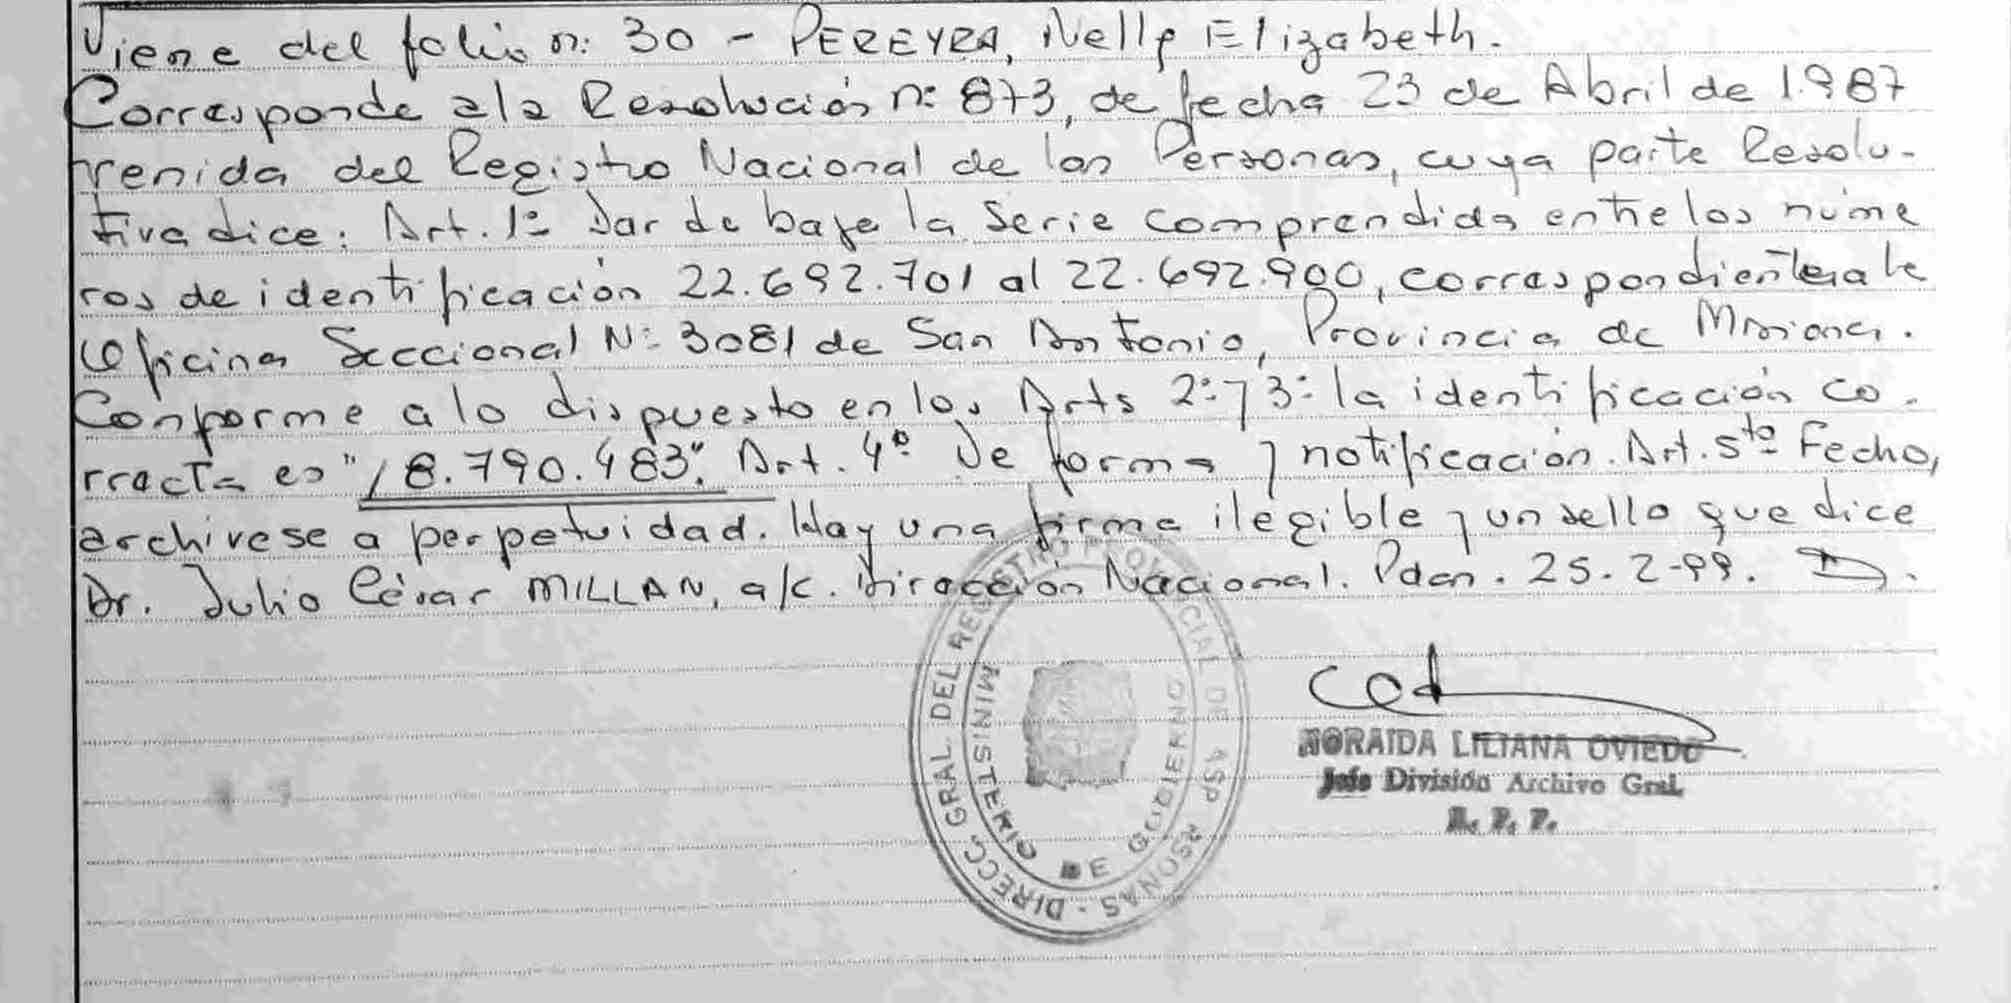 Viene del folio n: 30 - PEREYRA, Nelly Elizabeth.
Corresponde a la Resolución n: 873, de fecha 23 de Abril de 1.987
venida del Registro Nacional de las Personas, cuya parte Resolu-
tiva dice: Art. 1º Dar de baja la Serie comprendida entre los núme
ros de identificación 22.692.701 al 22.692.900, correspondientes a la
Oficina Seccional Nº 3081 de San Antonio, Provincia de Misiones.
Conforme a lo dispuesto en los Arts 2º y 3º la identificación co-
rrecta es "18.790.483". Art. 4º De forma y notificación. Art. 5to Fecho,
archivese a perpetuidad. Hay una firma ilegible y un sello que dice
Dr. Julio César MILLAN, a/c. Dirección Nacional. Pdas. 25-2-99.
DIRECC. GRAL. DEL REGISTRO PROVINCIAL DE
MINISTERIO DE GOBIERNO
NORAIDA LILIANA OVIEDO
Jefe División Archivo Gral.
R. P. P.